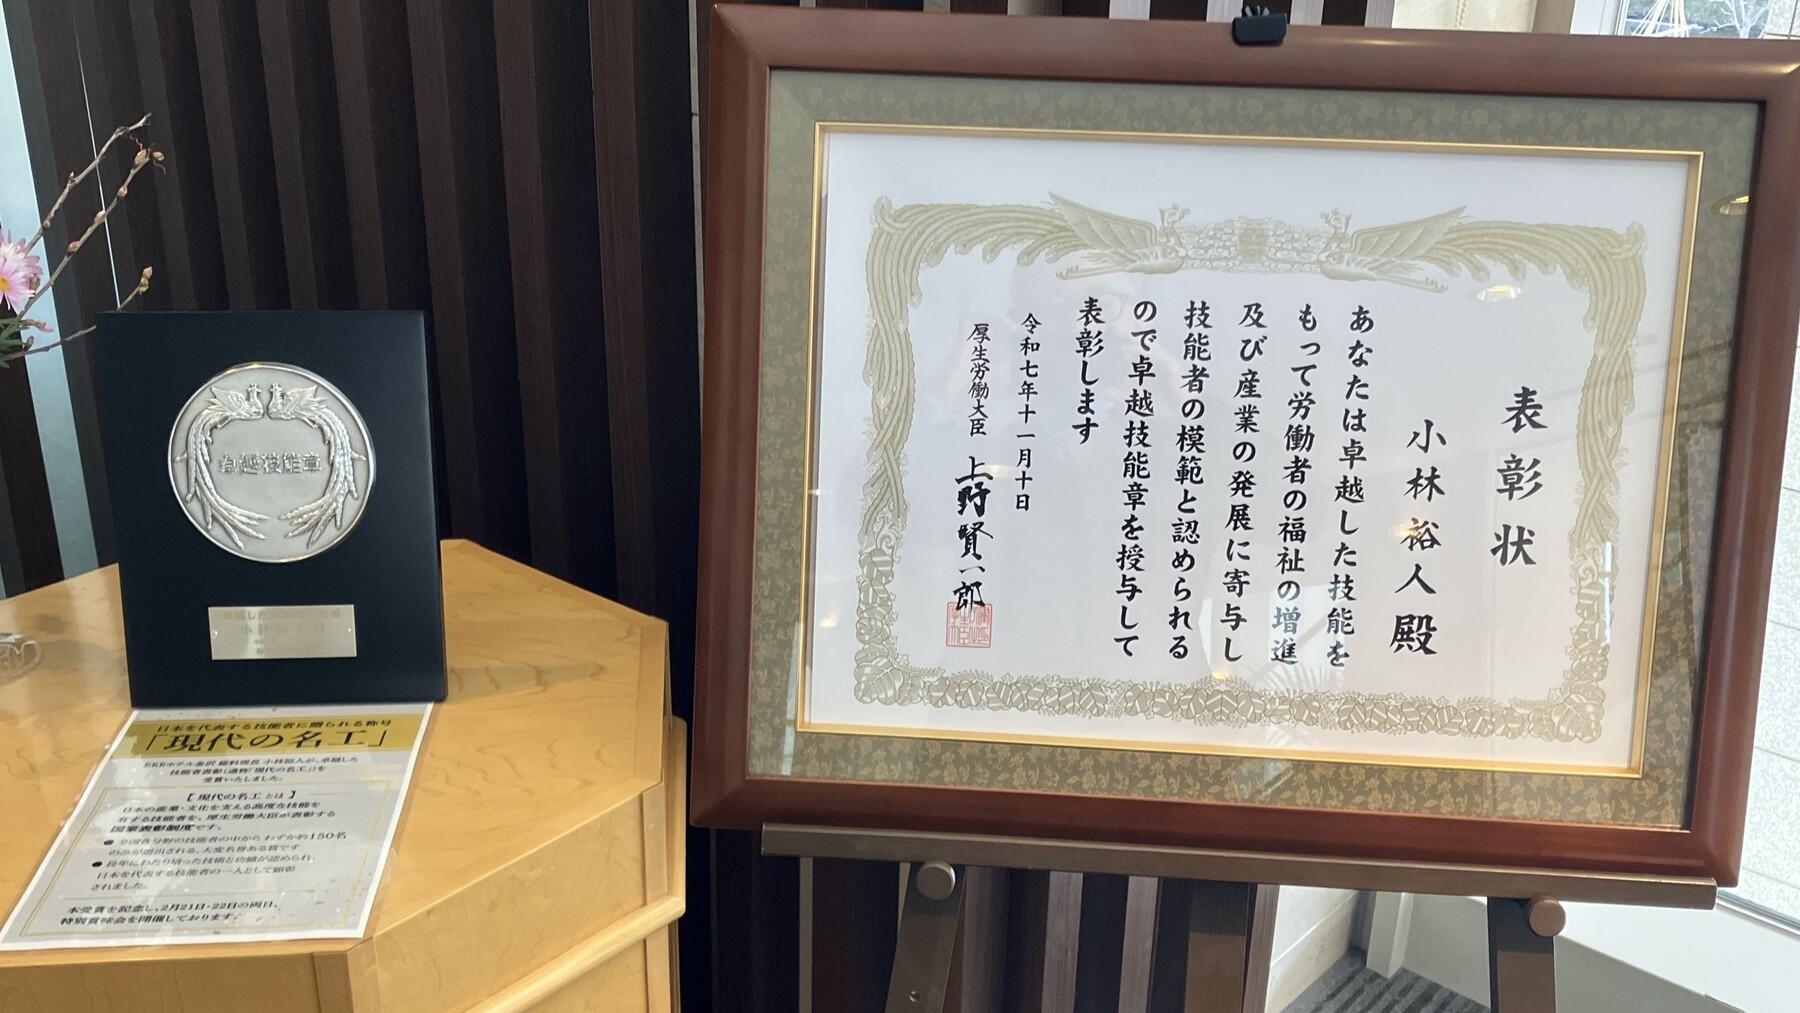 卓越技能章
日本を代表する技能者に贈られる称号
「現代の名工」
KKRホテル金沢 総料理長 小林裕人が、卓越した
技能者表彰(通称「現代の名工」)を
受賞いたしました。
【 現代の名工 とは 】
日本の産業・文化を支える高度な技能を
有する技能者を、厚生労働大臣が表彰する
国家表彰制度です。
● 全国各分野の技能者の中から わずか約150名
のみが選出される、大変名誉ある賞です
● 長年にわたり培った技術と功績が認められ、
日本を代表する技能者の一人として顕彰
されました。
本受賞を記念し、2月21日・22日の両日、
特別賞味会を開催しております。
表彰状
小林裕人殿
あなたは卓越した技能を
もって労働者の福祉の増進
及び産業の発展に寄与し
技能者の模範と認められる
ので卓越技能章を授与して
表彰します
令和七年十一月十日
厚生労働大臣 上野賢一郎